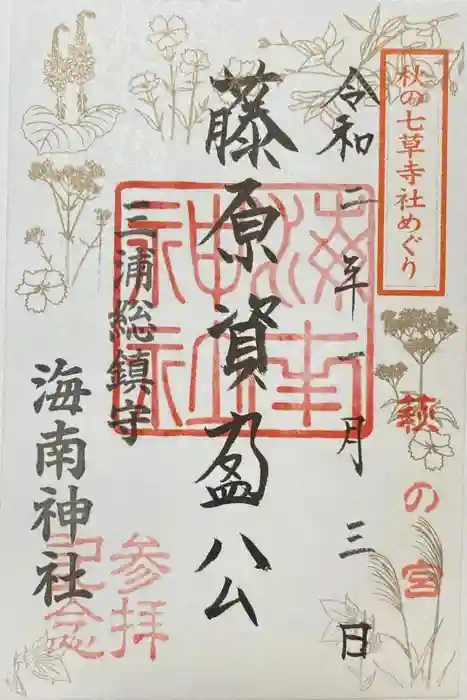 秋の七草寺社めぐり
萩の宮
令和二年一月三日
海南神社
藤原資盈公
三浦総鎮守
海南神社
参拝
記念